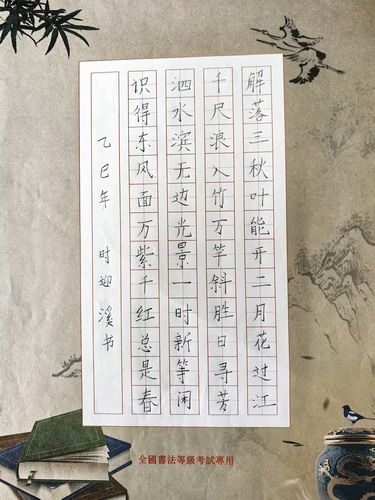 解落三秋叶能开二月花过江
千尺浪入竹万竿斜胜日寻芳
泗水滨无边光景一时新等闲
识得东风面万紫千红总是春
乙巳年 时迎溪书
全國書法等級考試專用